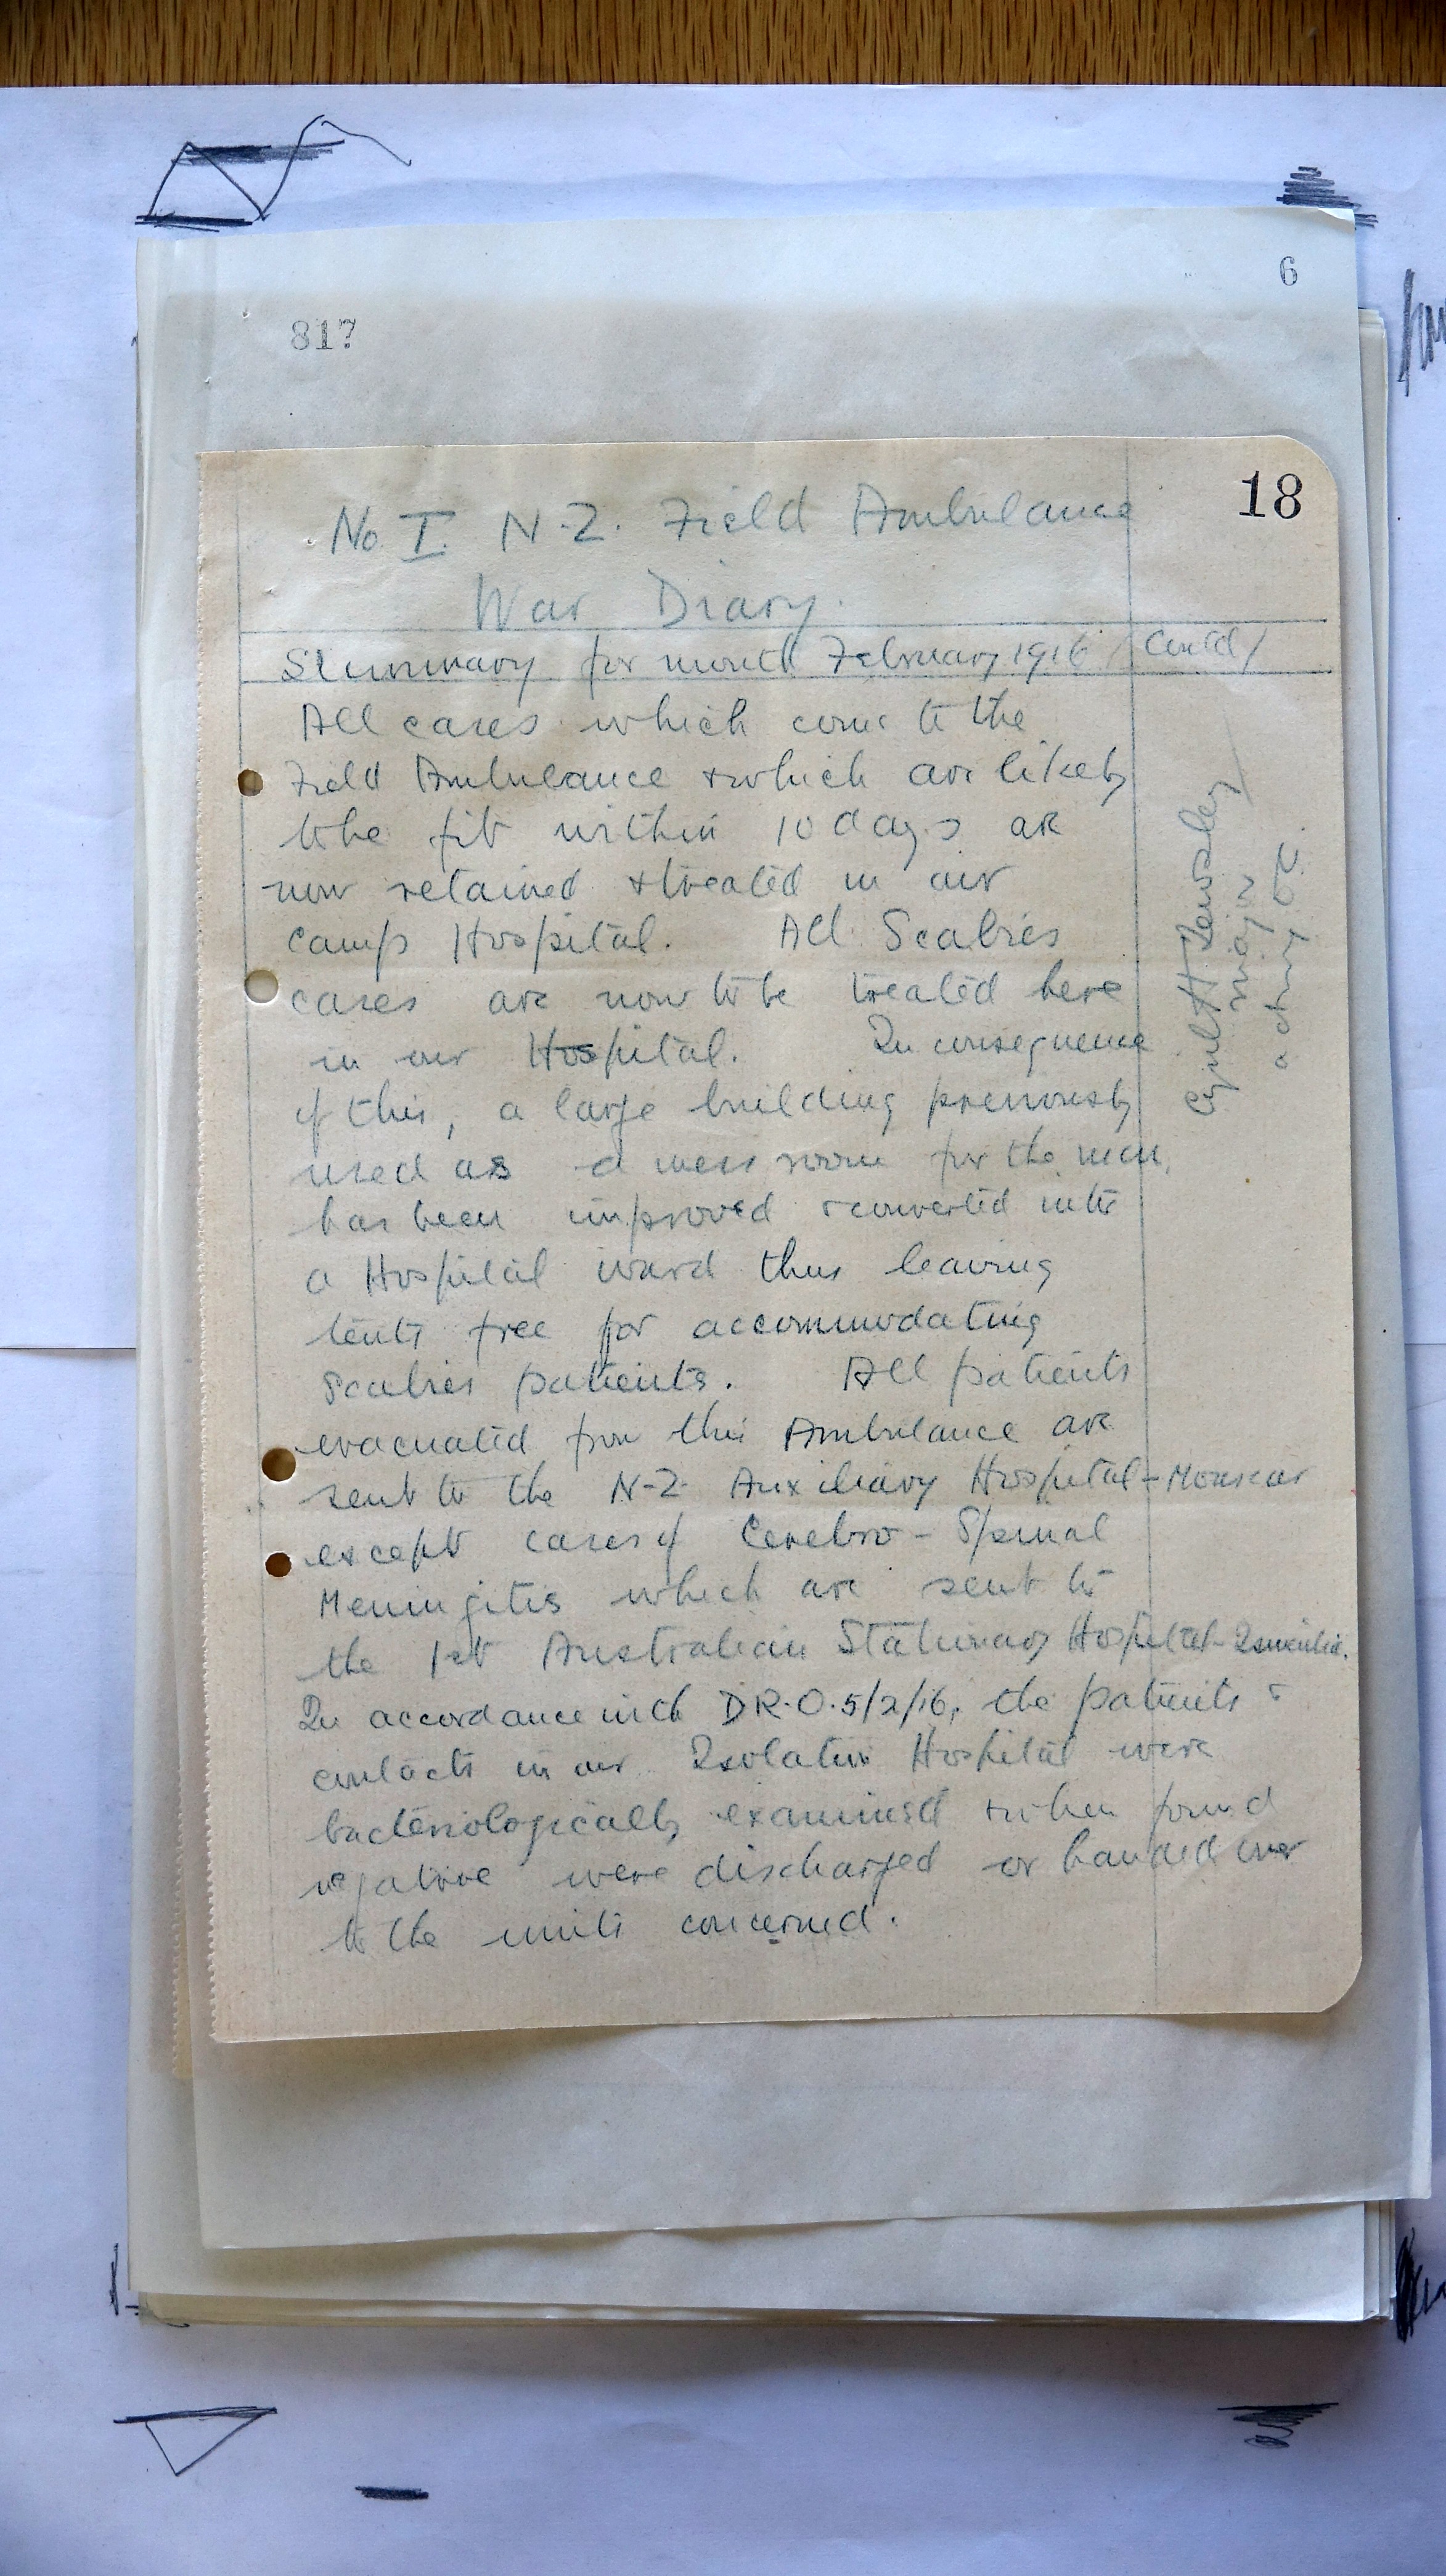 6
817
18
No. I. N.Z. Field Ambulance
War Diary.
Summary for month February 1916 / Contd /
All cases which come to the
Field Ambulance & which are likely
to be fit within 10 days are
now retained & treated in our
Camp Hospital. All Scabies
cases are now to be treated here
in our Hospital. In consequence
of this, a large building previously
used as a mess room for the men,
has been improved & converted into
a Hospital ward thus leaving
tents free for accommodating
Scabies patients. All patients
evacuated from this Ambulance are
sent to the N-Z. Auxiliary Hospital - Moascar
except cases of Cerebro - Spinal
Meningitis which are sent to
the 1st Australian Stationary Hospital - Ismailia.
In accordance with D.R.O. 5/2/16, the patients &
contacts in our Isolation Hospital were
bacteriologically examined & when found
negative were discharged or handed over
to the units concerned.
Major
acting O.C.